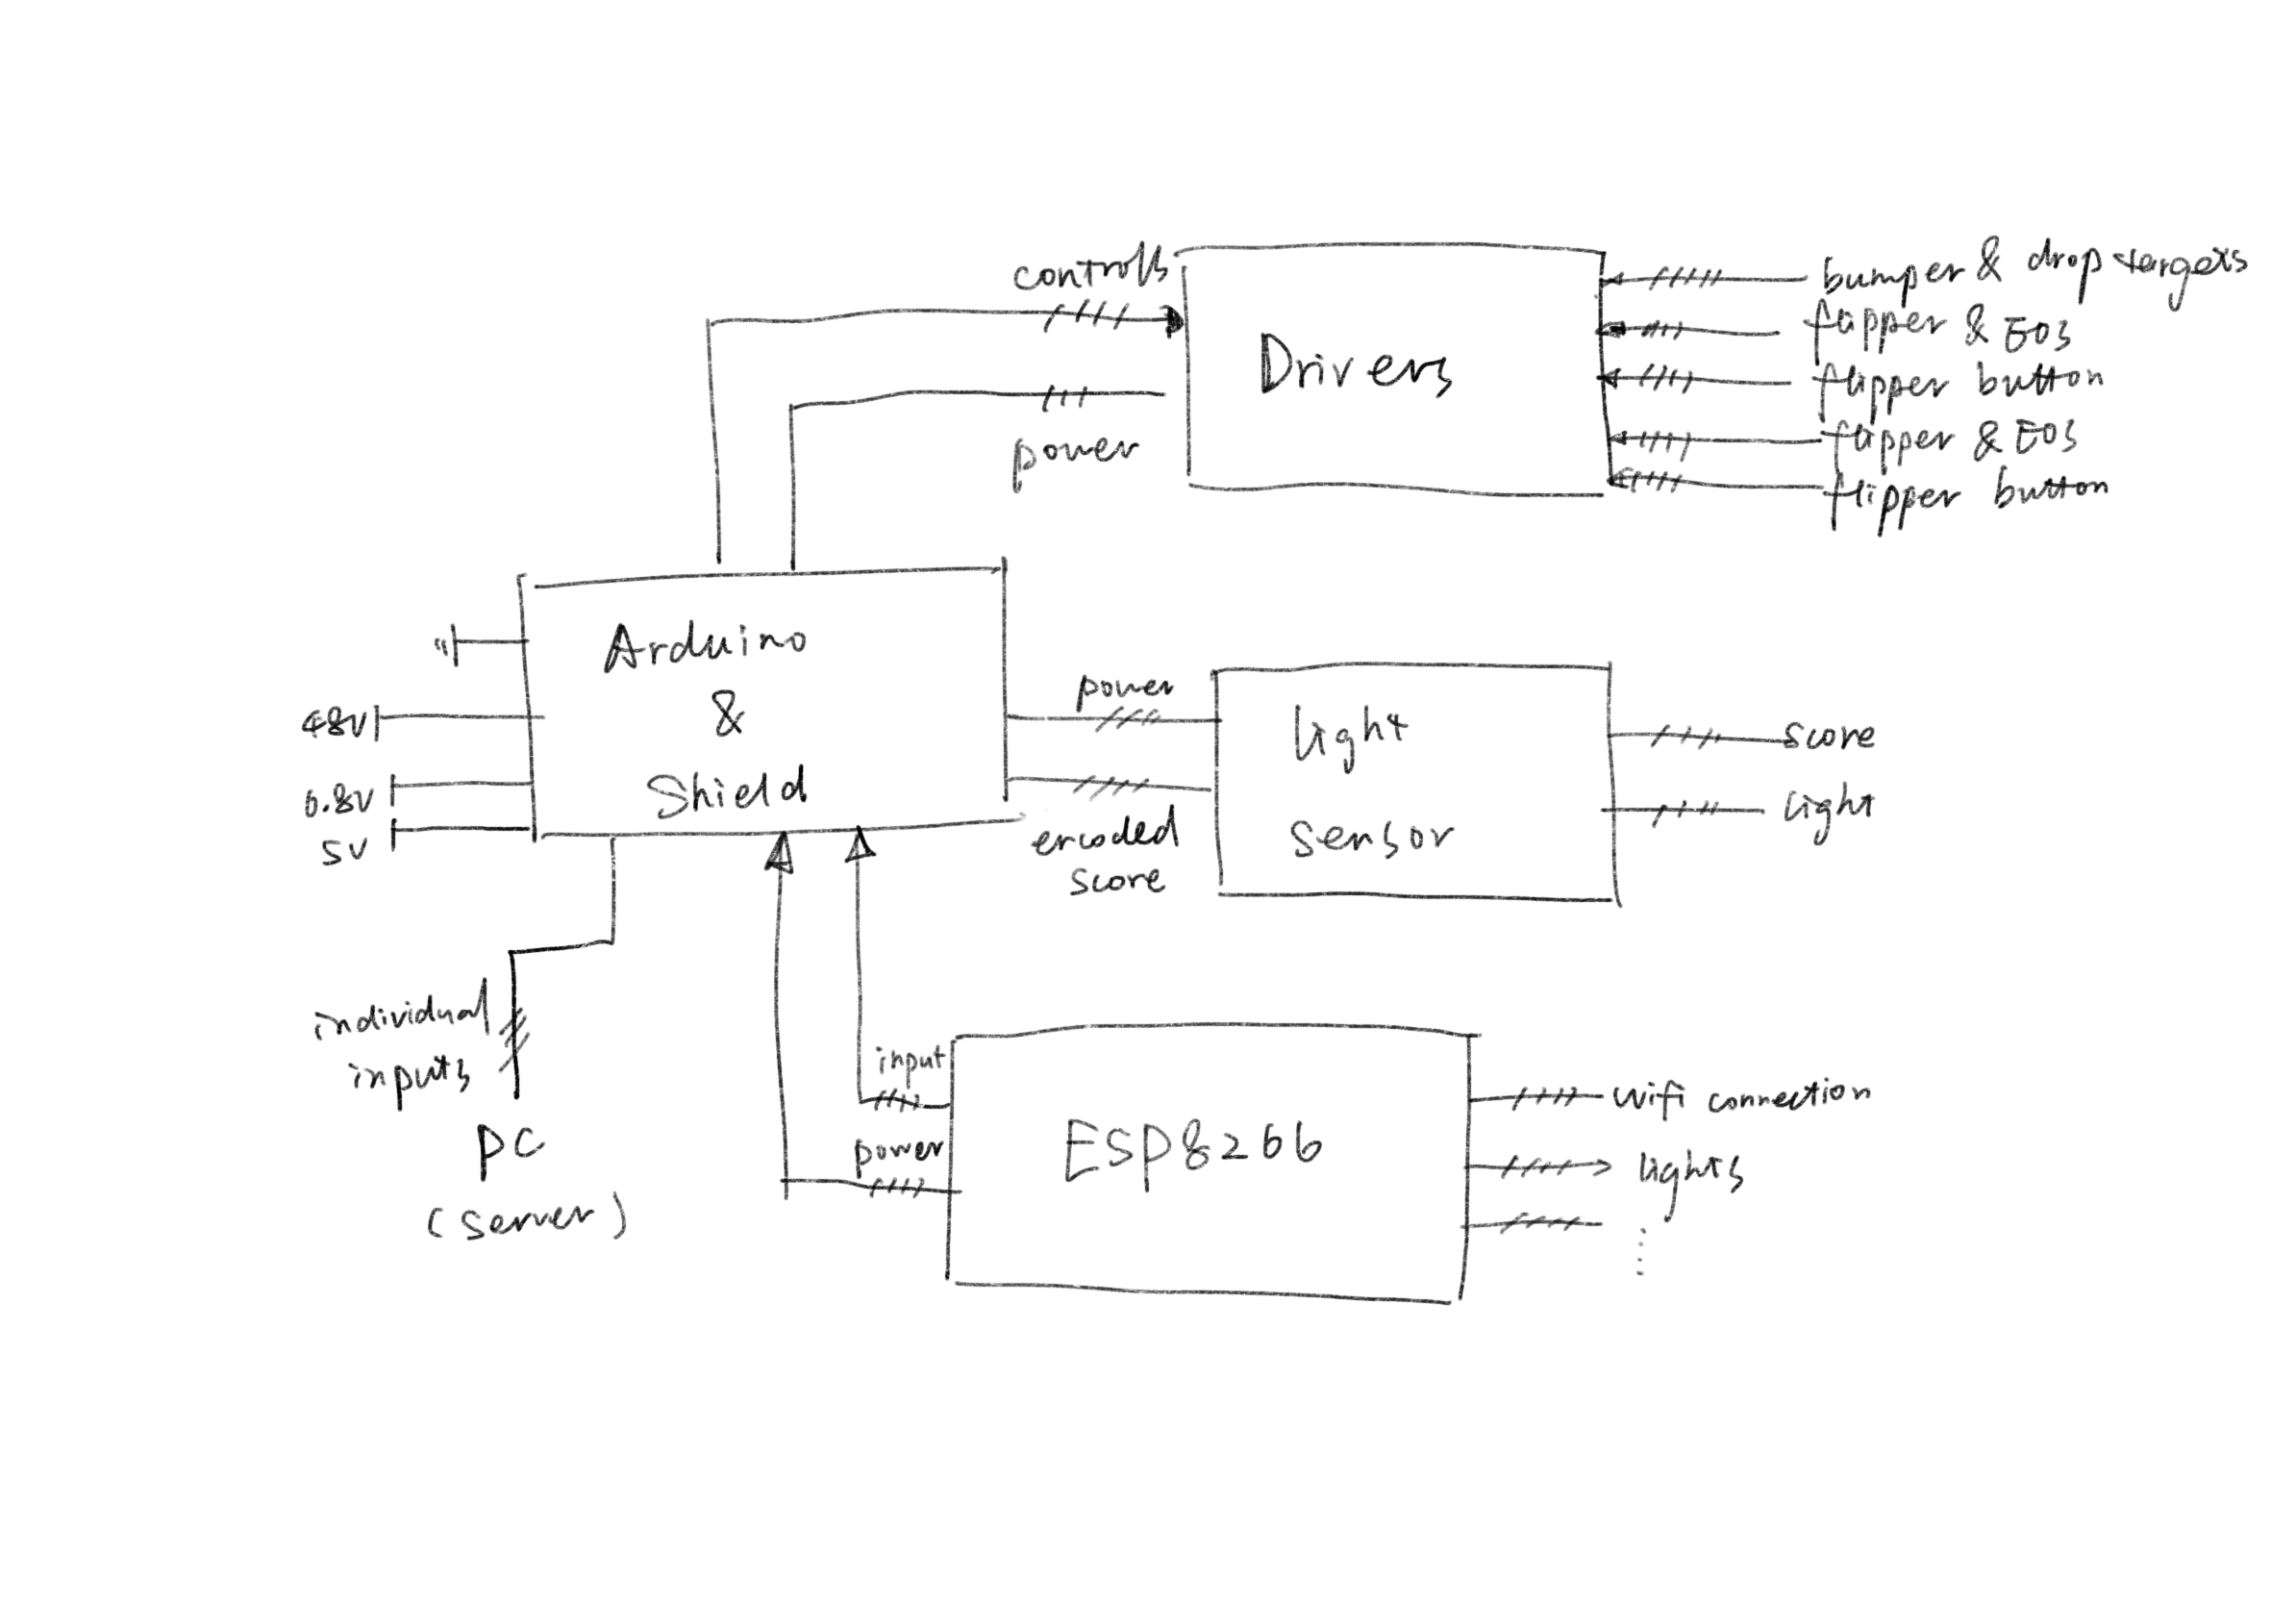 controlls
power
Drivers
bumper & drop targets
flipper & EOS
flipper button
flipper & EOS
flipper button
Arduino
&
Shield
48V
6.8V
5V
power
encoded
score
light
sensor
score
light
individual
inputs
PC
(server)
input
power
ESP8266
wifi connection
lights